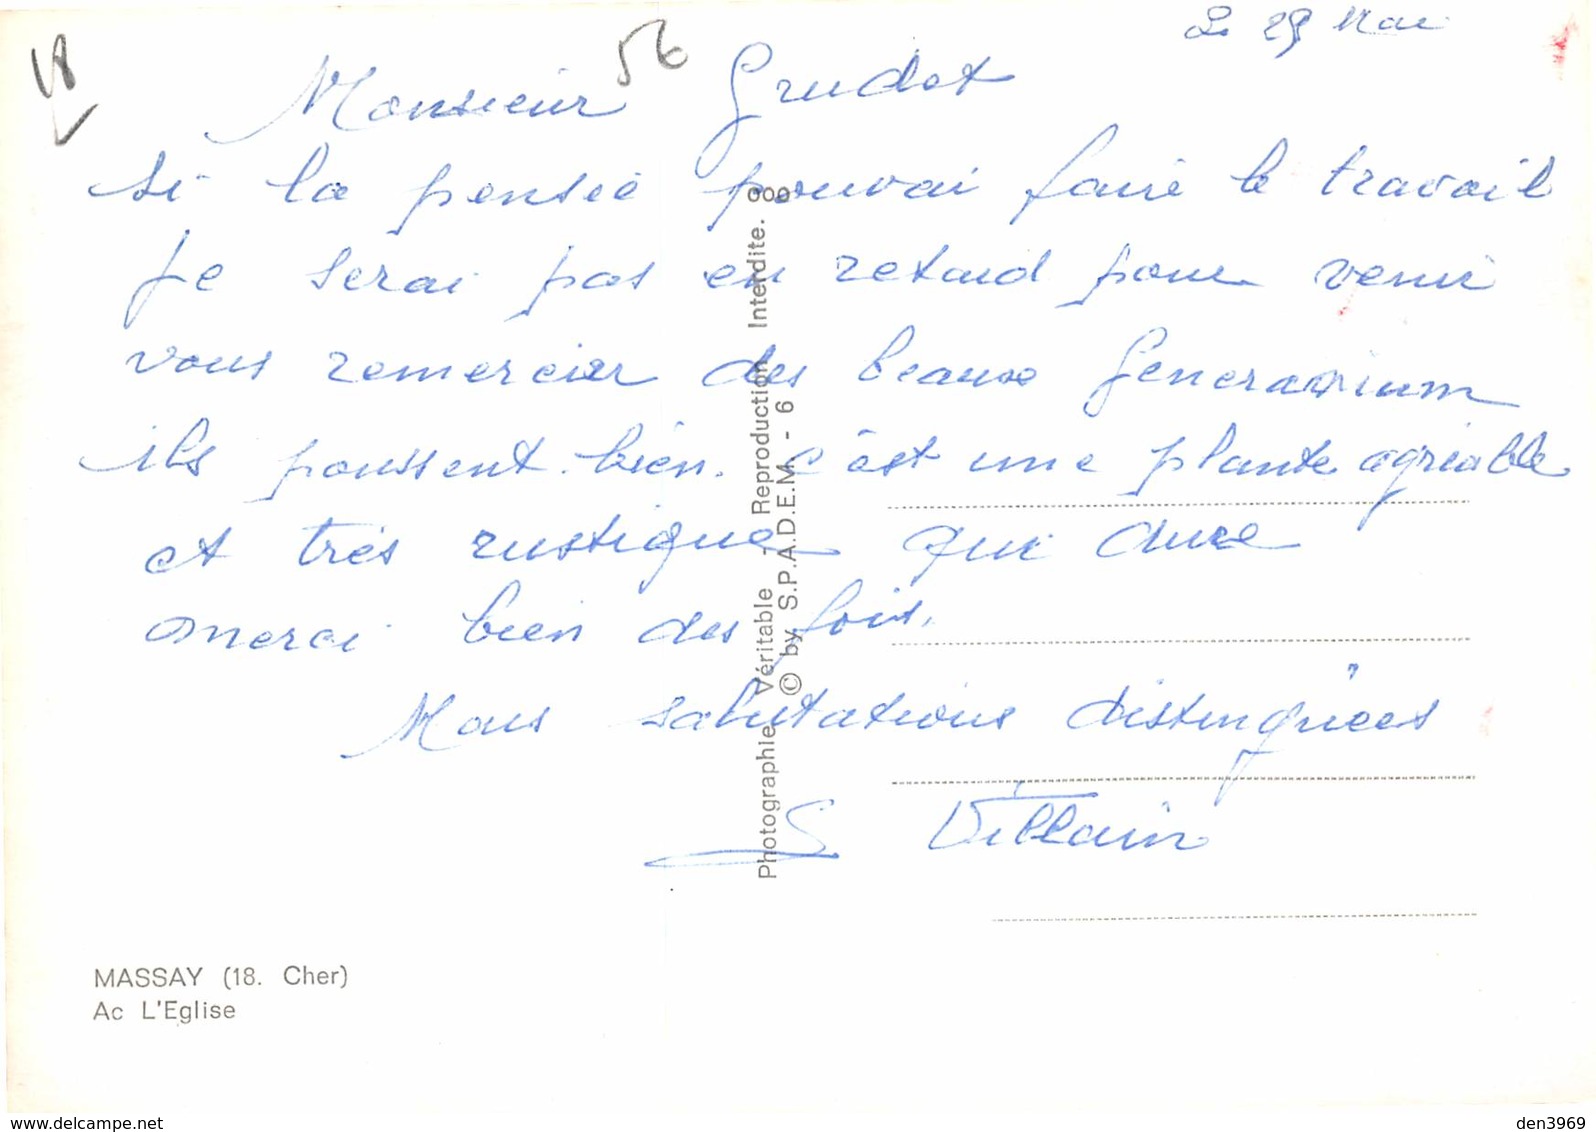 Le 29 Mai
18
56
Monsieur Grudet
si la penseé pouvai faire le travail
je serai pas en retard pour venir
vous remercier des beaux Generanium
ils poussent bien. c'est une plante agréable
et très rustique qui dure
merci bien des fois.
Mais salutations distinguées
S Villain
Photographie Véritable - Reproduction Interdite.
© by S.P.A.D.E.M. - 6
MASSAY (18. Cher)
Ac L'Eglise
www.delcampe.net
den3969